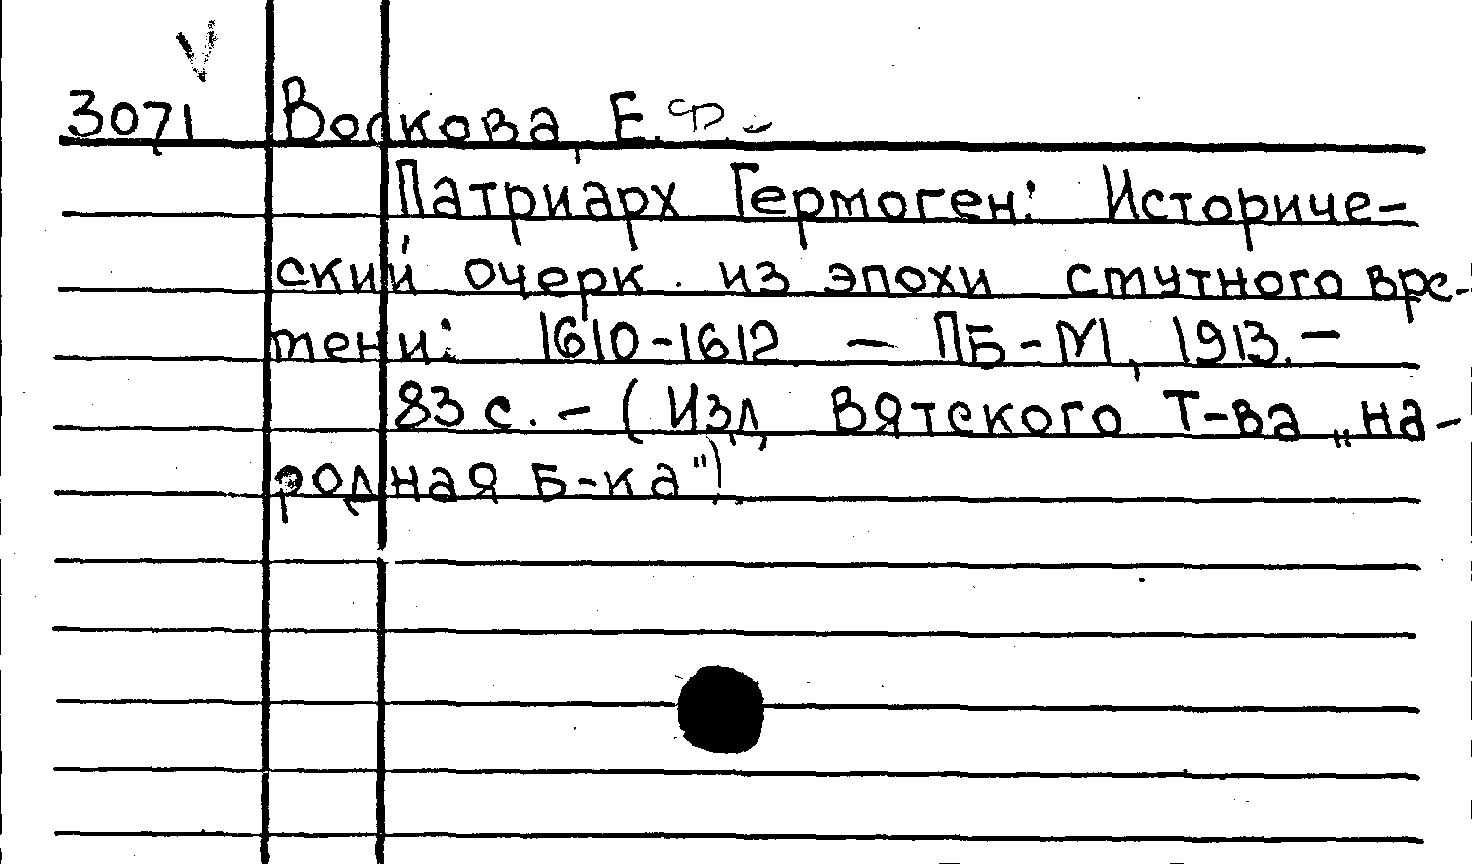 V
3071 Волкова, Е. Ф.
Патриарх Гермоген: Историче-
ский очерк из эпохи смутного вре-
мени: 1610-1612 — ПБ-М, 1913.—
83 с. — (Изд, Вятского Т-ва „на-
родная Б-ка")